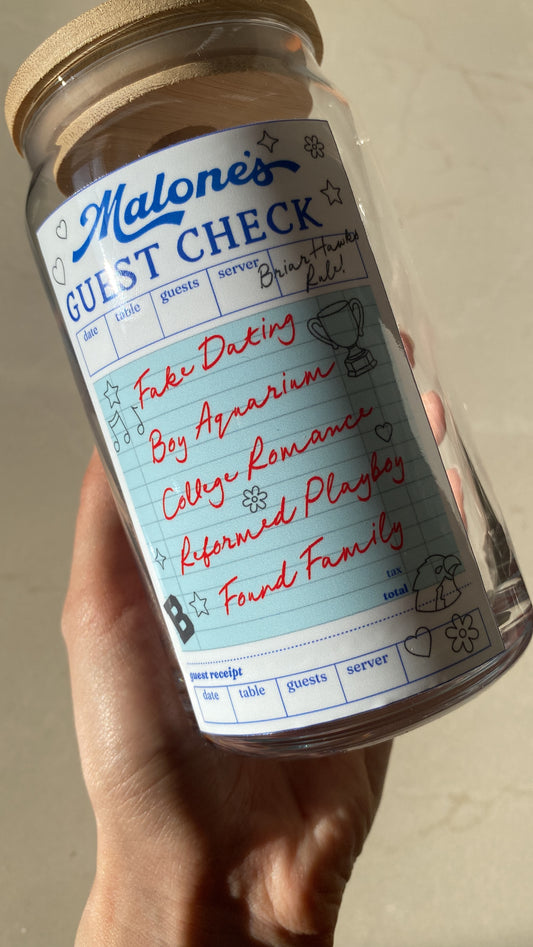 Malone's
GUEST CHECK
date table guests server
Briar Hawks
Rule!
Fake Dating
Boy Aquarium
College Romance
Reformed Playboy
Found Family
tax
total
B
guest receipt
date table guests server